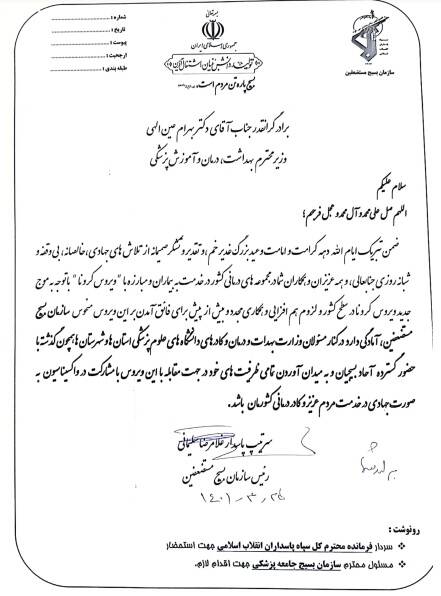 بسمه‌تعالی
جمهوری اسلامی ایران
بسیج پاره تن مردم است.
شماره :
تاریخ :
پیوست :
ارجحیت :
طبقه بندی :
سازمان بسیج مستضعفین
برادر گرانقدر جناب آقای دکتر بهرام عین الهی
وزیر محترم بهداشت، درمان و آموزش پزشکی
سلام علیکم
اللهم صل علی محمد و آل محمد و عجل فرجهم؛
ضمن تبریک ایام الله دهه کرامت و امامت و عید بزرگ غدیر خم، و تقدیر و تشکر صمیمانه از تلاش های جهادی، خالصانه، بی وقفه و
شبانه روزی جنابعالی، و همه عزیزان و همکاران شما در مجموعه های درمانی کشور در خدمت به بیماران و مبارزه با "ویروس کرونا" با توجه به موج
جدید ویروس کرونا در سطح کشور و لزوم هم افزایی و همکاری مجدد و بیش از پیش برای فائق آمدن بر این ویروس منحوس سازمان بسیج
مستضعفین، آمادگی دارد در کنار مسئولان وزارت بهداشت و درمان و کادرهای دانشگاه های علوم پزشکی استان ها و شهرستان ها همچون گذشته با
حضور گسترده آحاد بسیجیان و به میدان آوردن تمامی ظرفیت های خود در جهت مقابله با این ویروس با مشارکت در واکسیناسیون به
صورت جهادی در خدمت مردم عزیز و کادر درمانی کشورمان باشد.
سرتیپ پاسدار غلامرضا سلیمانی
رئیس سازمان بسیج مستضعفین
رونوشت :
سردار فرمانده محترم کل سپاه پاسداران انقلاب اسلامی جهت استحضار
مسئول محترم سازمان بسیج جامعه پزشکی جهت اقدام لازم.